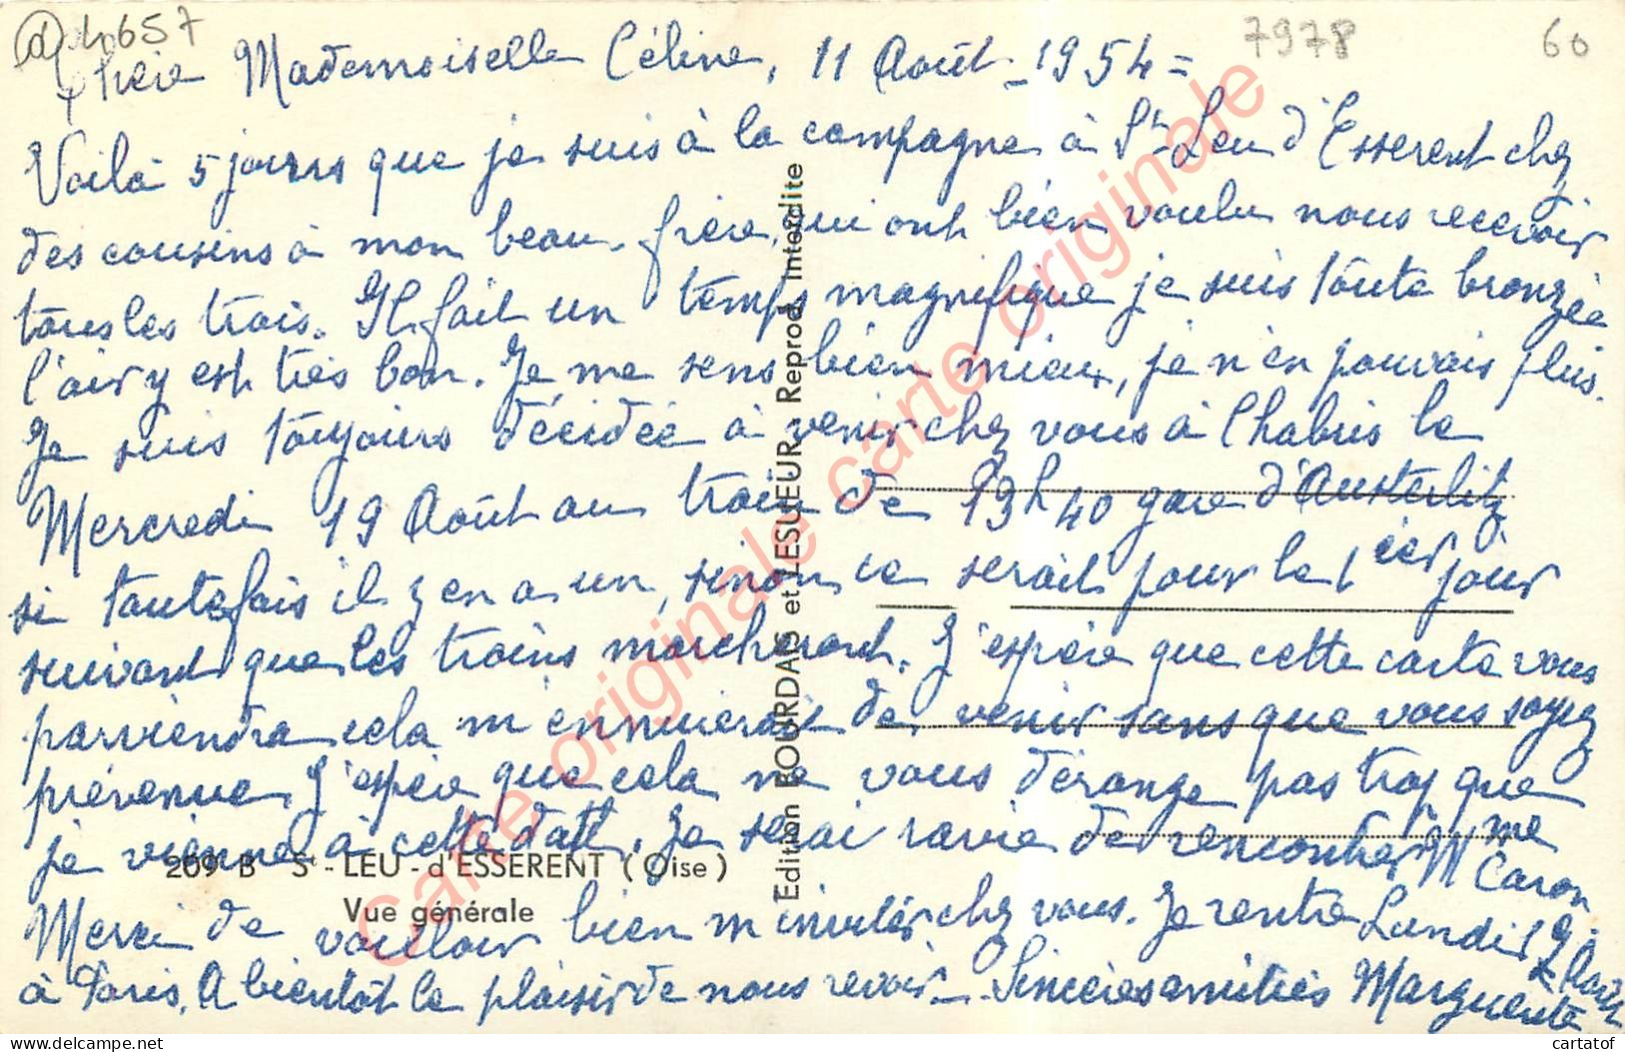 4657
7978
60
Chère Mademoiselle Céline, 11 Août - 1954 =
Voilà 5 jours que je suis à la campagne à St Leu d'Esserent chez
des cousins à mon beau-frère, qui ont bien voulu nous recevoir
tous les trois. Il fait un temps magnifique je suis toute bronzée
l'air y est très bon. Je me sens bien mieux, je n'en pouvais plus.
Je suis toujours décidée à venir chez vous à Chabris le
Mercredi 19 Août au train de 13h40 gare d'Austerlitz
si toutefois il y en a un, sinon ce serait pour le 1er jour
suivant que les trains marcheront. J'espère que cette carte vous
parviendra cela m'ennuierait de venir sans que vous soyez
prévenue. J'espère que cela ne vous dérange pas trop que
je vienne à cette date. Je serai ravie de rencontrer Mme Caron
Merci de vouloir bien m'inviter chez vous. Je rentre Lundi
à Paris. A bientôt le plaisir de nous revoir - Sincères amitiés Marguerite
209 B St - LEU - d'ESSERENT (Oise)
Vue générale
Edition BOURDAIS et LESUEUR Reprod. Interdite
Carte originale carte originale
delcampe.net
cartatof